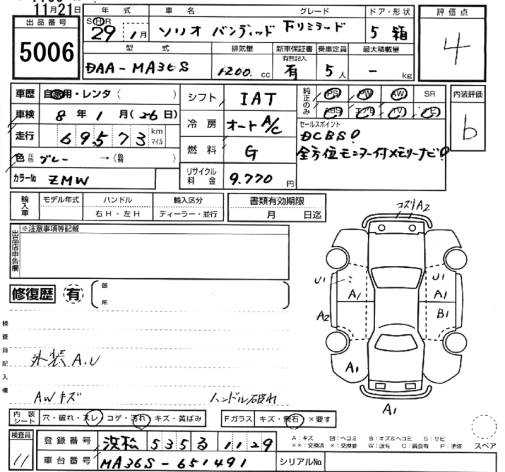 11月21日
出品番号
5006
年式 車名 グレード ドア・形状
SHR 29年 1月 ソリオ バンディット Fリミテッド 5 箱
型式 排気量 新車保証書 有無記入 乗車定員 最大積載量
DAA-MA36S 1200 cc 有 5人 - kg
評価点
4
車歴 自家用・レンタ( )
車検 8年 1月(26日)
走行 69573 km マイル
色 元色 グレー → (色替)
カラーNo. ZMW
シフト IAT
冷房 オート A/C
燃料 G
リサイクル料金 9,770円
純正のみ PS PW AW SR
ABS エアB TV
セールスポイント
DCBS!
全方位モニター付メモリーナビ!
内装評価
b
輸入車 モデル年式 ハンドル 右H・左H 輸入区分 ディーラー・並行
書類有効期限
月 日迄
出品店申告欄 ※注意事項等記載
修復歴 有 箇所
検査員記入欄
外装 A.U
AWキズ ハンドル破れ
コスリ A2
U1 A1
A2
U1
B1
A1
A1
内装シート 穴・破れ・スレ コゲ・汚れ キズ・黄ばみ
Fガラス キズ・飛石 ×要す
検査員 11
登録番号 浜松 535 る 1129
車台番号 MA36S-651491 シリアルNo.
A:キズ U:ヘコミ B:キズ&ヘコミ S:サビ
スペア